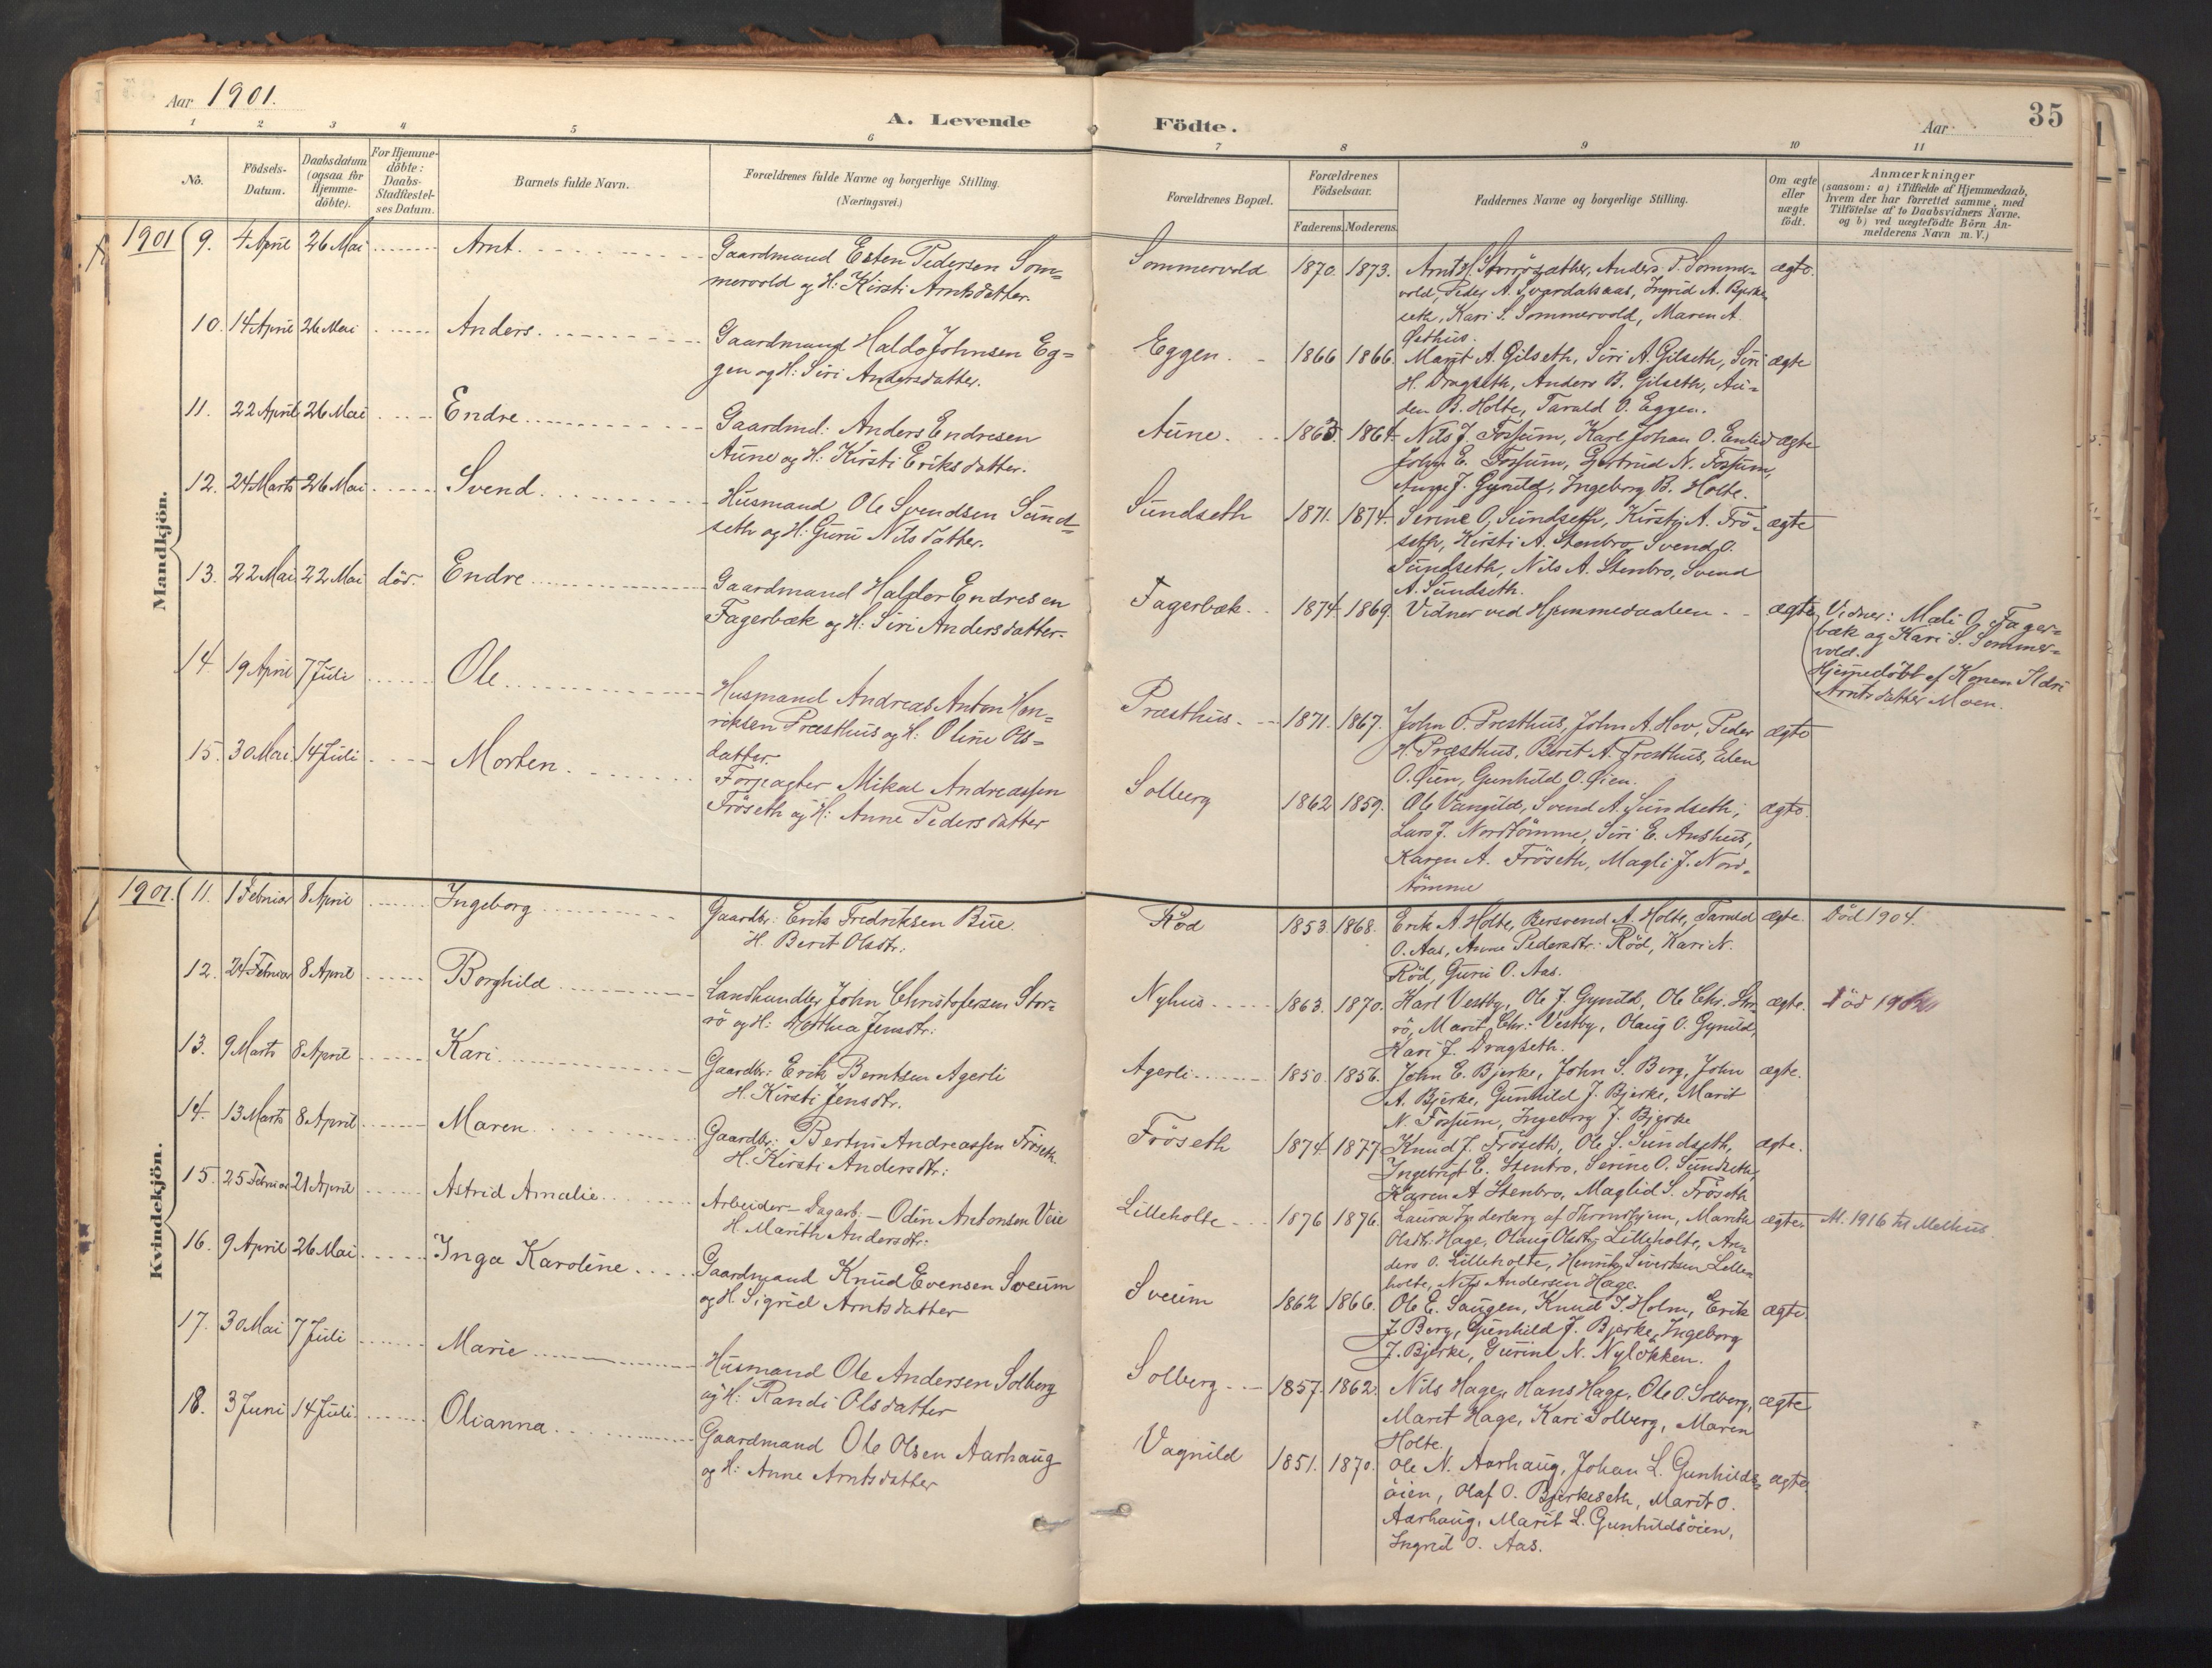 Aar 1901.
A. Levende Födte.
Aar
35
1 2 3 4 5 6 7 8 9 10 11
No.
Födsels-Datum.
Daabsdatum (ogsaa for Hjemme-döbte).
For Hjemme-döbte: Daabs-Stadfæstel-ses Datum.
Barnets fulde Navn.
Forældrenes fulde Navne og borgerlige Stilling.
(Næringsvei.)
Forældrenes Bopæl.
Forældrenes Födselsaar.
Faderens. Moderens.
Faddernes Navne og borgerlige Stilling.
Om ægte eller uægte födt.
Anmærkninger
(saasom: a) i Tilfælde af Hjemmedaab,
hvem der har forrettet samme, med
Tilföielse af to Daabsvidners Navne.
og b) ved uægtefödte Börn An-
melderens Navn m. V.)
Mandkjön.
1901 9. 4 April 26 Mai Arnt. Gaardmand Esten Pedersen Som=
mervold og H: Kirsti Arntsdatter.
Sommervold 1870. 1873. Arnt H. Storrösæther, Anders P. Sommer-
vold, Peder A. Svardalsaas, Ingrid A. Bjerke
seth, Kari S. Sommervold, Maren A.
Gethus. ægte.
10. 14 April 26 Mai Anders. Gaardmand Haldo Johnsen Eg=
gen og H: Siri Andersdatter.
Eggen. 1866 1866. Marit A. Gilseth, Siri A. Gilseth, Siri ægte
H. Dragseth, Anders B. Gilseth, Au=
den B. Holte, Tarald O. Eggen.
11. 22 April 26 Mai Endre Gaardmd: Anders Endresen
Aune og H: Kirsti Eriksdatter.
Aune. 1865 1864 Nils J. Fossum, Karl Johan O. Enlid ægte
John E. Fossum, Gjertrud N. Fossum,
Anne J. Gynild, Ingeborg B. Holte.
12. 24 Marts 26 Mai Svend Husmand Ole Svendsen Sund=
seth og H: Guru Nilsdatter.
Sundseth 1871. 1874. Serine O. Sundseth, Kirsti A. Frö- ægte
seth, Kirsti A. Stenbro, Svend O.
Sundseth, Nils A. Stenbro, Svend
A. Sundseth.
13. 22 Mai 22 Mai död. Endre Gaardmand Haldor Endresen
Fagerbæk og H: Siri Andersdatter.
Fagerbæk 1874. 1869. Vidner ved Hjemmedaaben ægte Vidner: Mali O. Fager=
bæk og Kari S. Sommer=
vold.
Hjemmedöbt af Konen Ildri
Arntsdatter Moen.
14 19 April 7 Juli Ole Husmand Andreas Anton Hen=
riksen Præsthus og H: Oline Ols=
datter.
Præsthus 1871. 1867. John O. Presthus, John A. Hov, Peder ægte
H. Præsthus, Berit A. Presthus, Eden
O. Øien, Gunhild O. Øien.
15. 30 Mai 14 Juli Morten. Forpagter Mikal Andreassen
Fröseth og H: Anne Pedersdatter
Solberg 1862 1859. Ole Vangild, Svend A. Sundseth, ægte.
Lars J. Nordtömme, Siri E. Aushus,
Karen A. Fröseth, Magli J. Nord-
tömme
Kvindekjön.
1901. 11. 1 Februar 8 April Ingeborg Gaardbr: Erik Fredriksen Bue.
H. Berit Olsdtr:
Röd 1853. 1868. Erik A. Holte, Bersvend A. Holte, Tarald ægte. Död 1904.
O. Aas, Anne Pedersdtr: Röd, Kari N.
Röd, Guru O. Aas.
12. 24 Februar 8 April Borghild Landhandler John Christofersen Stor-
rö og H: Dorthea Jensdtr:
Nyhus 1863. 1870. Karl Vestby, Ole J. Gynild, Ole Chr. Stor- ægte. Död
rö, Marit Chr: Vestby, Olaug O. Gynild,
Kari J. Dragseth.
13. 9 Marts 8 April Kari Gaardbr: Erik Berntsen Agerli
H. Kirsti Jensdtr.
Agerli 1850. 1856. John E. Bjerke, John S. Berg, John ægte.
A. Bjerke, Gunhild J. Bjerke, Marit
N. Fossum, Ingeborg J. Bjerke
14. 13 Marts 8 April Maren Gaardbr: Bertin Andreassen Fröseth
H. Kirsti Andersdtr:
Fröseth 1874 1877 Knud J. Fröseth, Ole S. Sundseth, ægte.
Ingebrigt E. Stenbro, Serine O. Sundseth,
Karen A Stenbro, Maglid S. Fröseth
15. 25 Februar 21 April Astrid Amalie Arbeider- Dagarb: - Odin Antonsen Veie
H. Marith Andersdtr:
Lilleholte 1876 1876. Laura Inderberg af Thronhjem, Marith ægte M. 1916 til Melhus.
Olsdtr: Hage, Olaug Olsdtr: Lilleholte, An-
ders O. Lilleholte, Henrik Sivertsen Lille-
holte, Nils Andersen Hage.
16. 9 April 26 Mai Inga Karoline Gaardmand Knud Evensen Sveum
og H. Sigrid Arntsdatter
Sveum 1862 1866. Ole E. Haugen, Knud J. Holm, Erik ægte.
J. Berg, Gunhild J. Bjerke, Ingeborg
J. Bjerke, Gurine N. Nylökken.
17. 30 Mai 7 Juli Marie Husmand Ole Andersen Solberg
og H: Randi Olsdatter
Solberg 1857. 1862. Nils Hage, Hans Hage, Ole O. Solberg, ægte
Marit Hage, Kari Solberg, Maren
Holte.
18. 3 Juni 14 Juli Olianna Gaardmand Ole Olsen Aarhaug
og H: Anne Arntsdatter
Vagnild 1851. 1870. Ole N. Aarhaug, Johan L. Gunhilds= ægte
öien, Olaf O. Bjerkeseth, Marit O.
Aarhaug, Marit L. Gunhildsöien,
Ingrid O. Aas.